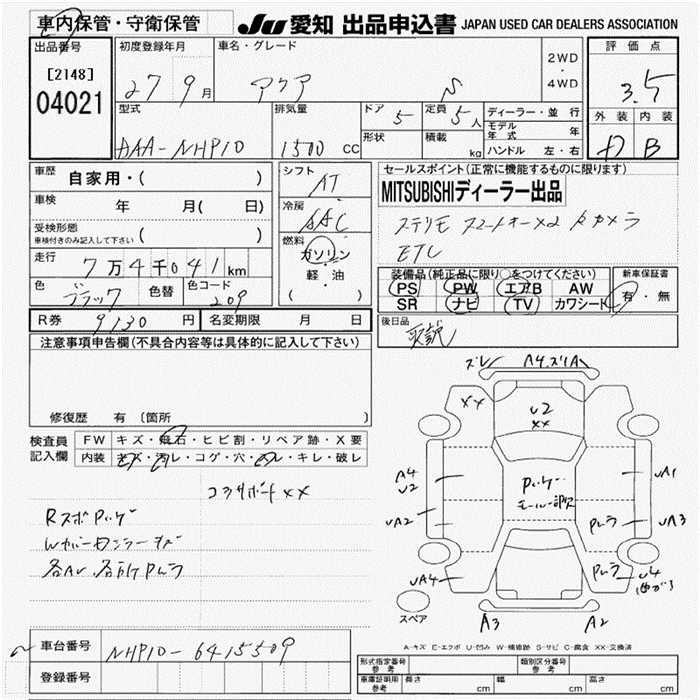 車内保管・守衛保管
JU 愛知 出品申込書 JAPAN USED CAR DEALERS ASSOCIATION
出品番号
[2148]
04021
初度登録年月
27 9月
車名・グレード
アクア S
2WD
・
4WD
評価点
3.5
型式
DAA-NHP10
排気量
1500 cc
ドア 5
定員 5人
形状
積載 kg
ディーラー・並行
モデル年式 年
ハンドル 左・右
外装 内装
D B
車歴 自家用・( )
車検 年 月( 日)
受検形態
車検付きのみ記入して下さい ( )
走行 7万4千041km
色 ブラック 色替
色コード 209
シフト AT
冷房 AAC
燃料
ガソリン
軽・油
( ・ )
セールスポイント(正常に機能するものに限ります)
MITSUBISHIディーラー出品
ETC
装備品(純正品に限り○をつけてください)
PS PW エアB AW
SR ナビ TV カワシート
新車保証書
有・無
後日品
R券 9130 円
名変期限 月 日
注意事項申告欄(不具合内容等は具体的に記入して下さい)
修復歴 有 〔箇所 〕
検査員
記入欄
FW キズ・飛石・ヒビ割・リペア跡・X要
内装 キズ・汚レ・コゲ・穴・スレ・キレ・破レ
コラサポート XX
ズレ A4.スリA
XX U2
XX
A4
U2
UA1
UA2
UA3
UA4
U4
A3 A2
スペア
A-キズ E-エクボ U-凹ミ W-補修跡 S-サビ C-腐食 XX-交換済
車台番号 NHP10-6415509
登録番号
形式指定番号
参考
類別区分番号
参考
車庫証明用
参考
長さ cm 幅 cm 高さ cm